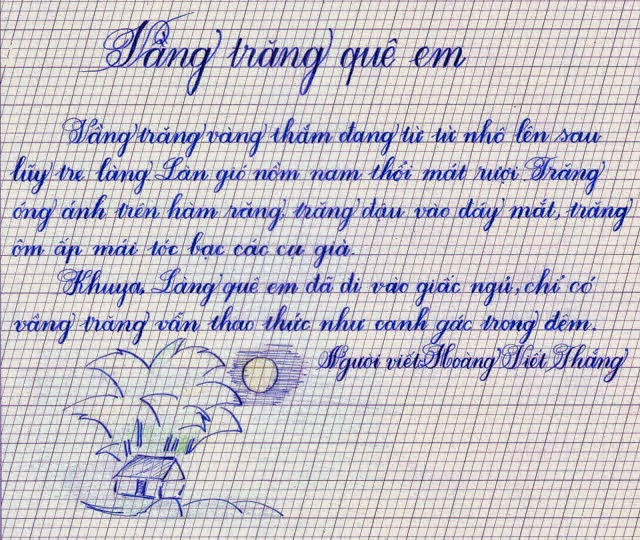 Vầng trăng quê em
Vầng trăng vàng thắm đang từ từ nhô lên sau
lũy tre làng Làn gió nồm nam thổi mát rượi Trăng
óng ánh trên hàm răng, trăng đậu vào đáy mắt, trăng
ôm ấp mái tóc bạc các cụ già.
Khuya. Làng quê em đã đi vào giấc ngủ, chỉ có
vầng trăng vẫn thao thức như canh gác trong đêm.
Người viết Hoàng Viết Thắng